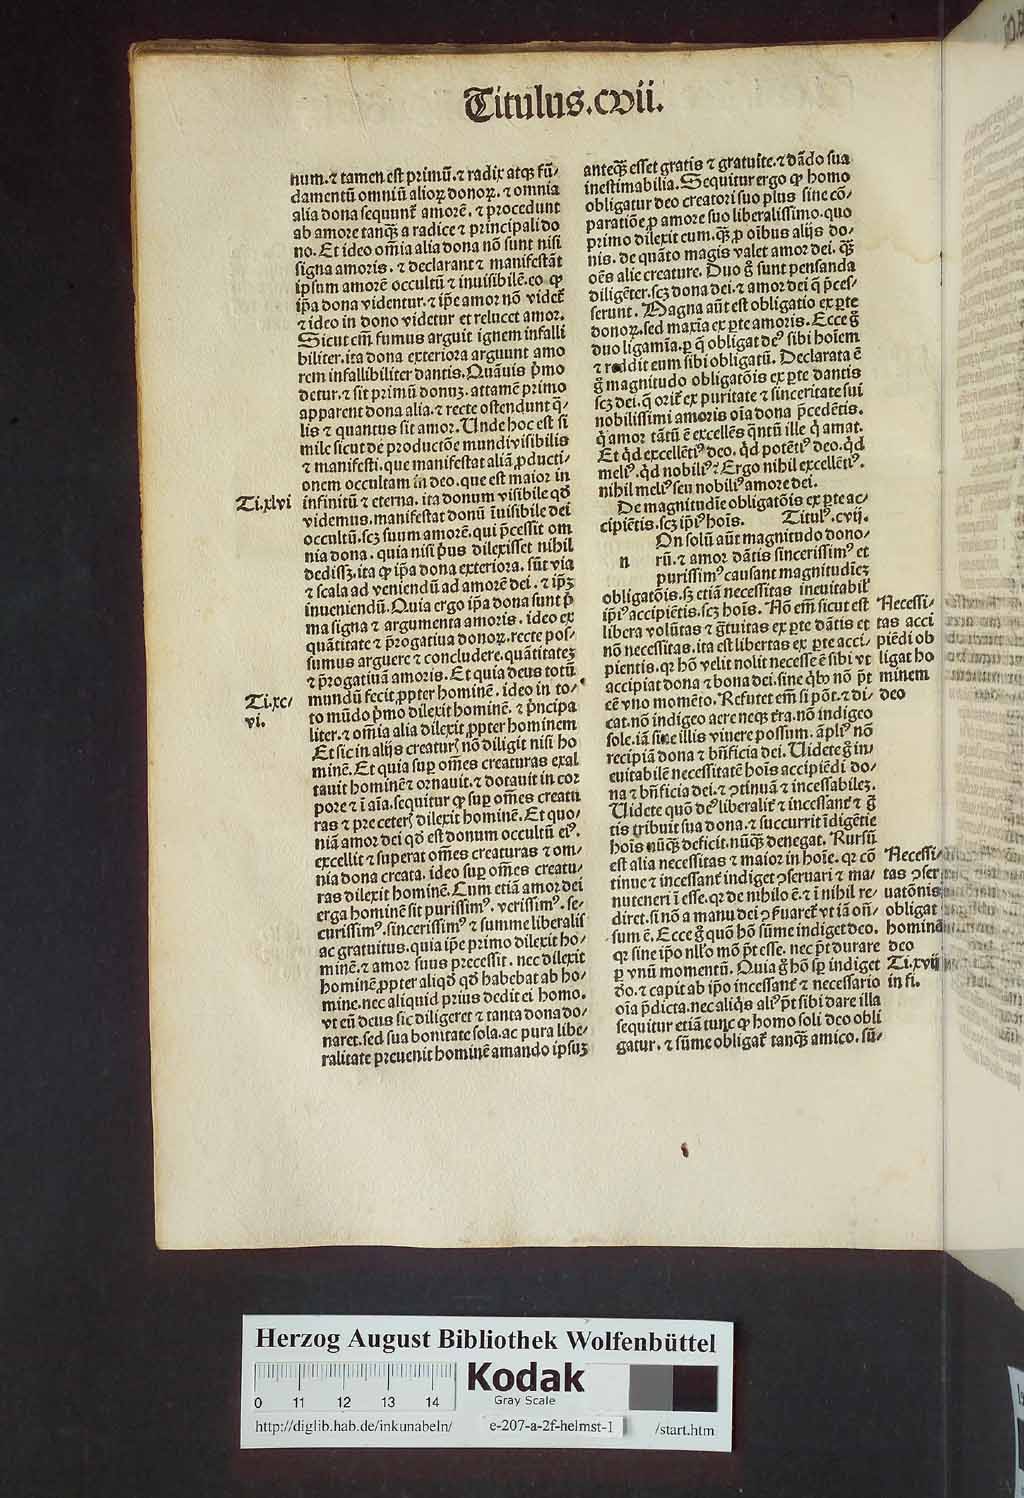 Titulus.cvii.
num. ⁊ tamen est primū. ⁊ radix atqꝫ fū-
damentū omniū alioꝝ donoꝝ. ⁊ omnia
alia dona sequunt̄ amorē. ⁊ procedunt
ab amore tanqꝫ a radice ⁊ principali do
no. Et ideo om̄ia alia dona nō sunt nisi
signa amoris. ⁊ declarant ⁊ manifestāt
ipsum amorē occultū ⁊ inuisibilē. eo ꝙ
ip̄a dona videntur. ⁊ ip̄e amor nō videt̄
⁊ ideo in dono videtur et relucet amor.
Sicut em̄ fumus arguit ignem infalli
biliter. ita dona exteriora arguunt amo
rem infallibiliter dantis. Quāuis p̄mo
detur. ⁊ sit primū donuꝫ. attamē primo
apparent dona alia. ⁊ recte ostendunt q̄-
lis ⁊ quantus sit amor. Unde hoc est si
mile sicut de productōe mundi visibilis
⁊ manifesti. que manifestat aliā ꝓducti-
onem occultam in deo. que est maior in
Ti.xlvi
infinitū ⁊ eterna. ita donum visibile qd̄
videmus. manifestat donū īuisibile dei
occultū. scꝫ suum amorē. qui p̄cessit om
nia dona. quia nisi p̄us dilexisset nihil
dedissꝫ. ita ꝙ ip̄a dona exteriora. sūt via
⁊ scala ad veniendū ad amorē dei. ⁊ ip̄ꝫ
inueniendū. Quia ergo ip̄a dona sunt p̄
ma signa ⁊ argumenta amoris. ideo ex
quātitate ⁊ p̄rogatiua donoꝝ. recte pos-
sumus arguere ⁊ concludere. quātitateꝫ
⁊ p̄rogatiuā amoris. Et quia deus totū
Ti.xc-
vi.
mundū fecit ꝓpter hominē. ideo in to-
to mūdo p̄mo dilexit hominē. ⁊ p̄ncipa
liter. ⁊ om̄ia alia dilexit ꝓpter hominem
Et sic in alijs creaturꝭ nō diligit nisi ho
minē. Et quia suꝑ om̄es creaturas exal
tauit hominē ⁊ ornauit. ⁊ dotauit in cor
pore ⁊ ī aīa. sequitur ꝙ suꝑ om̄es creatu
ras ⁊ pre ceterꝭ dilexit hominē. Et quo-
niā amor dei qd̄ est donum occultū eiꝰ.
excellit ⁊ superat om̄es creaturas ⁊ om-
nia dona creata. ideo suꝑ om̄es creatu-
ras dilexit hominē. Cum etiā amor dei
erga hominē sit purissimꝰ. verissimꝰ. se-
curissimꝰ. sincerissimꝰ ⁊ summe liberalis
ac gratuitus. quia ip̄e primo dilexit ho-
minē. ⁊ amor suus precessit. nec dilexit
hominē ꝓpter aliqd̄ qd̄ habebat ab ho-
mine. nec aliquid prius dedit ei homo.
vt eū deus sic diligeret ⁊ tanta dona do-
naret. sed sua bonitate sola. ac pura libe-
ralitate preuenit hominē amando ipsuꝫ
anteqꝫ esset gratis ⁊ gratuite. ⁊ dādo sua
inestimabilia. Sequitur ergo ꝙ homo
obligatur deo creatori suo plus sine cō-
paratiōe ꝓ amore suo liberalissimo. quo
primo dilexit eum. qꝫ ꝓ oībus alijs do-
nis. de quāto magis valet amor dei. qꝫ
oēs alie creature. Duo g̊ sunt pensanda
diligēter. scꝫ dona dei. ⁊ amor dei q̄ p̄ces-
serunt. Magna aūt est obligatio ex ꝑte
donoꝝ. sed maxīa ex ꝑte amoris. Ecce g̊
duo ligamīa. ꝑ q̄ obligat deꝰ sibi hoīem
⁊ reddit eum sibi obligatū. Declarata ē
g̊ magnitudo obligatōis ex ꝑte dantis
scꝫ dei. q̄ orit̄ ex puritate ⁊ sinceritate sui
nobilissimi amoris oīa dona p̄cedētis.
q̇ amor tātū ē excellēs q̄ntū ille q̇ amat.
Et qd̄ excellētiꝰ deo. qd̄ potētiꝰ deo. qd̄
meliꝰ. qd̄ nobiliꝰ? Ergo nihil excellētiꝰ.
nihil meliꝰ seu nobiliꝰ amore dei.
De magnitudīe obligatōis ex ꝑte ac-
cipiētis. scꝫ ip̄iꝰ hoīs. Titulꝰ. cvij.
On solū aūt magnitudo dono-
n rū. ⁊ amor dātis sincerissimꝰ et
purissimꝰ causant magnitudīeꝫ
obligatōis. sꝫ etiā necessitas ineuitabil̄
ip̄iꝰ accipiētis. scꝫ hoīs. Nō em̄ sicut est
libera volūtas ⁊ ḡtuitas ex ꝑte dātis et
nō necessitas. ita est libertas ex ꝑte acci-
pientis. qr hō velit nolit necesse ē sibi vt
accipiat dona ⁊ bona dei. sine qb̄ꝰ nō p̄t
eē vno momēto. Refutet em̄ si pōt. ⁊ di-
cat. nō indigeo aere neqꝫ t̄ra. nō indigeo
sole. iā sine illis viuere possum. āpliꝰ nō
recipiā dona ⁊ bn̄ficia dei. Uidete g̊ in-
euitabilē necessitatē hoīs accipiēdi do-
na ⁊ bn̄ficia dei. ⁊ ꝯtinuā ⁊ incessabileꝫ.
Uidete quō deꝰ liberalit̄ ⁊ incessant̄ ⁊ ḡ
tis tribuit sua dona. ⁊ succurrit īdigētie
hoīs nūqꝫ deficit. nūqꝫ denegat. Rursū
est alia necessitas ⁊ maior in hoīe. qr cō
tinue ⁊ incessant̄ indiget ꝯseruari ⁊ ma-
nuteneri ī esse. qr de nihilo ē. ⁊ ī nihil re-
diret. si nō a manu dei ꝯseruaret̄ vt iā oñ-
sum ē. Ecce g̊ quō hō sūme indiget deo.
qr sine ip̄o nullo mō p̄t esse. nec p̄t durare
ꝑ vnū momentū. Quia g̊ hō sꝑ indiget
do. ⁊ capit ab ip̄o incessant̄ ⁊ necessario
oīa p̄dicta. nec aliqs̄ aliꝰ p̄t sibi dare illa
sequitur etiā tunc ꝙ homo soli deo obli
gatur. ⁊ sūme obligat̄ tanqꝫ amico. sū-
Necessi-
tas acci
piēdi ob
ligat ho
minem
deo
Necessi-
tas ꝯser
uatōnis
obligat
hominē
deo
Ti.xvij
in fi.
Herzog August Bibliothek Wolfenbüttel
0 11 12 13 14
Kodak
Gray Scale
http://diglib.hab.de/inkunabeln/ e-207-a-2f-helmst-1 /start.htm